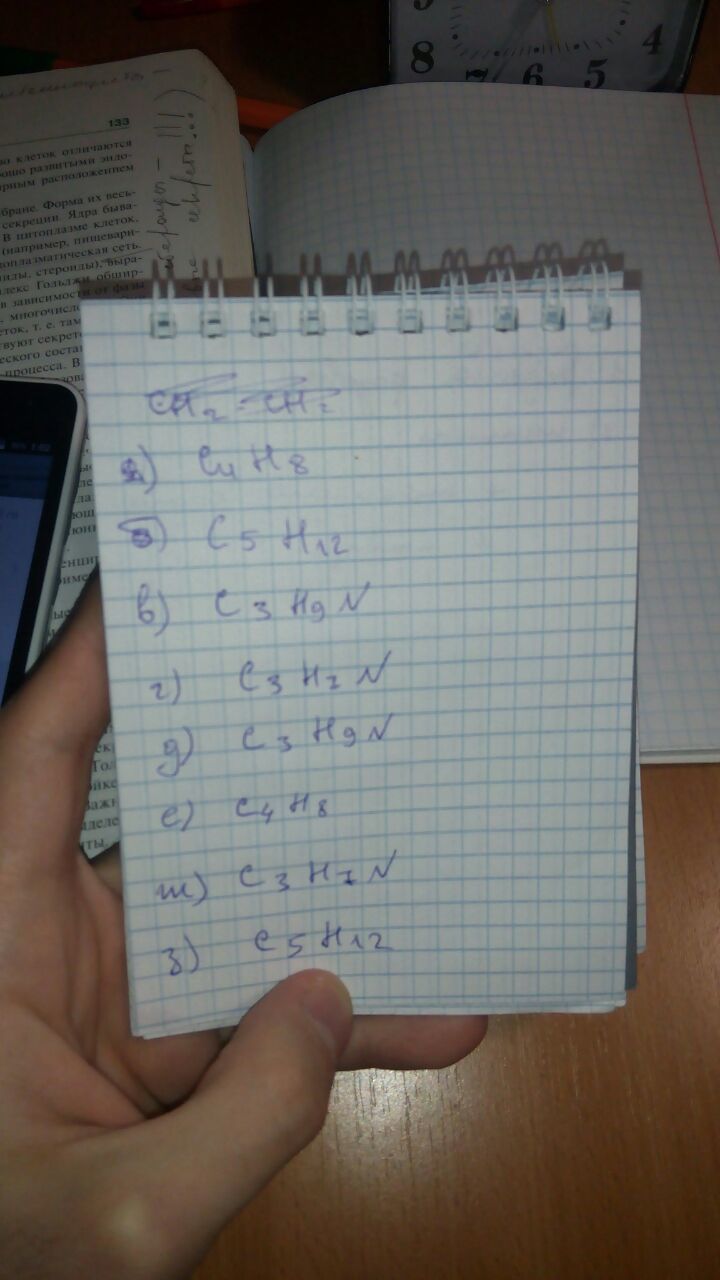 133
во клеток отличаются
рошо развитыми эндо-
ярным расположением
бране. Форма их весь-
секреции. Ядра быва-
В цитоплазме клеток,
(например, пищевари-
доплазматическая сеть.
пиды, стероиды), выра-
лекс Гольджи обшир-
в зависимости от фазы
многочисле
ток, т. е. там
ствуют секрет
ческого соста
процесса. В
8 7 6 5 4
CH2=CH2
а) C4H8
б) C5H12
в) C3H9N
г) C3H7N
д) C3H9N
е) C4H8
ж) C3H7N
з) C5H12